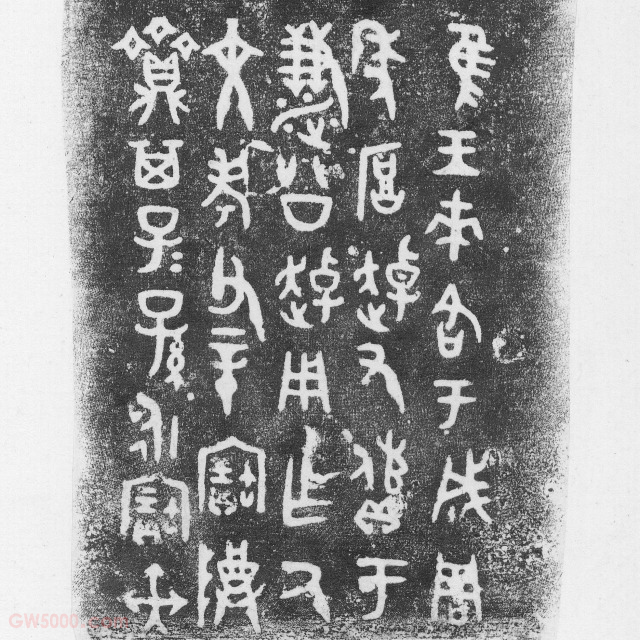 隹王來各于成周
年厚趠又于
溓公趠用乍氒
文考父辛寶尊
齍其子=孫=永寶束